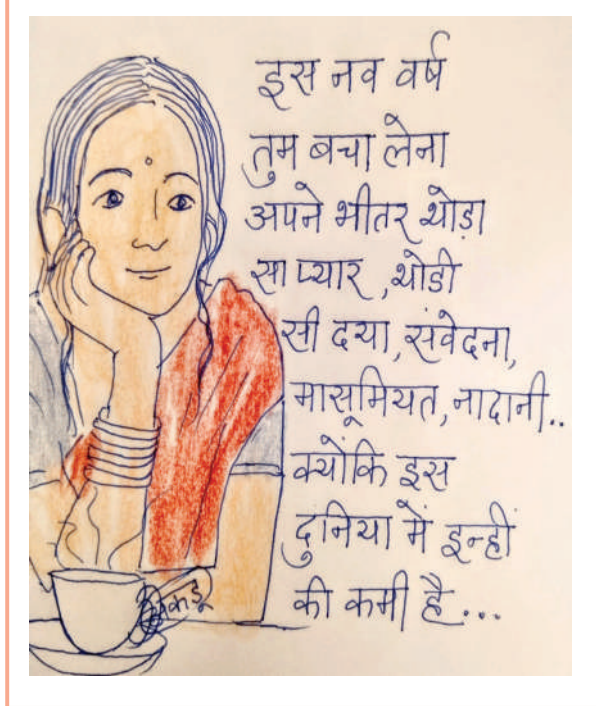 इस नव वर्ष
तुम बचा लेना
अपने भीतर थोड़ा
सा प्यार ,थोडी
सी दया, संवेदना,
मासूमियत, नादानी..
क्योंकि इस
दुनिया में इन्हीं
की कमी है...